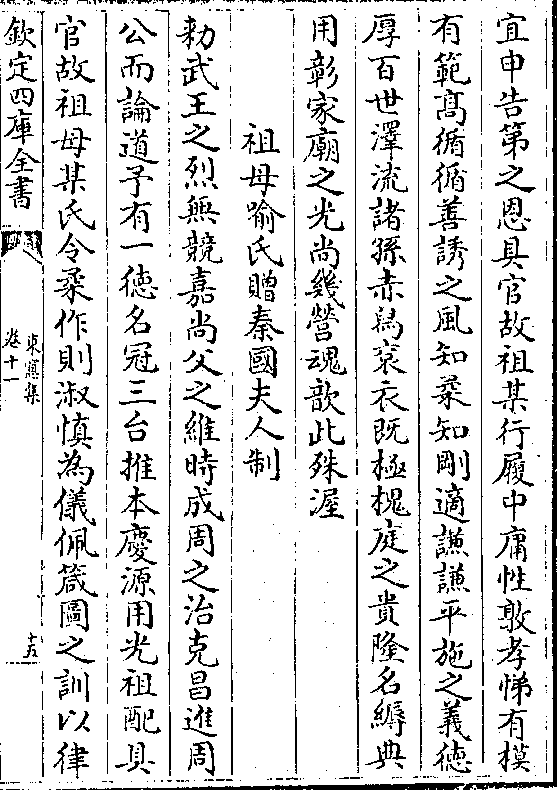 宜申告第之恩具官故祖某行履中庸性敦孝悌有模
有範髙循循善誘之風知柔知剛適謙謙平施之義德
厚百世澤流諸孫赤舄袞衣既極槐庭之貴隆名縟典
用彰家廟之光尚幾營魂歆此殊渥
祖母喻氏贈秦國夫人制
勑武王之烈無競嘉尚父之維時成周之治克昌進周
公而論道予有一德名冠三台推本慶源用光祖配具
官故祖母某氏令柔作則淑慎為儀佩箴圖之訓以律
欽定四庫全書
東窻集
卷十一
十五